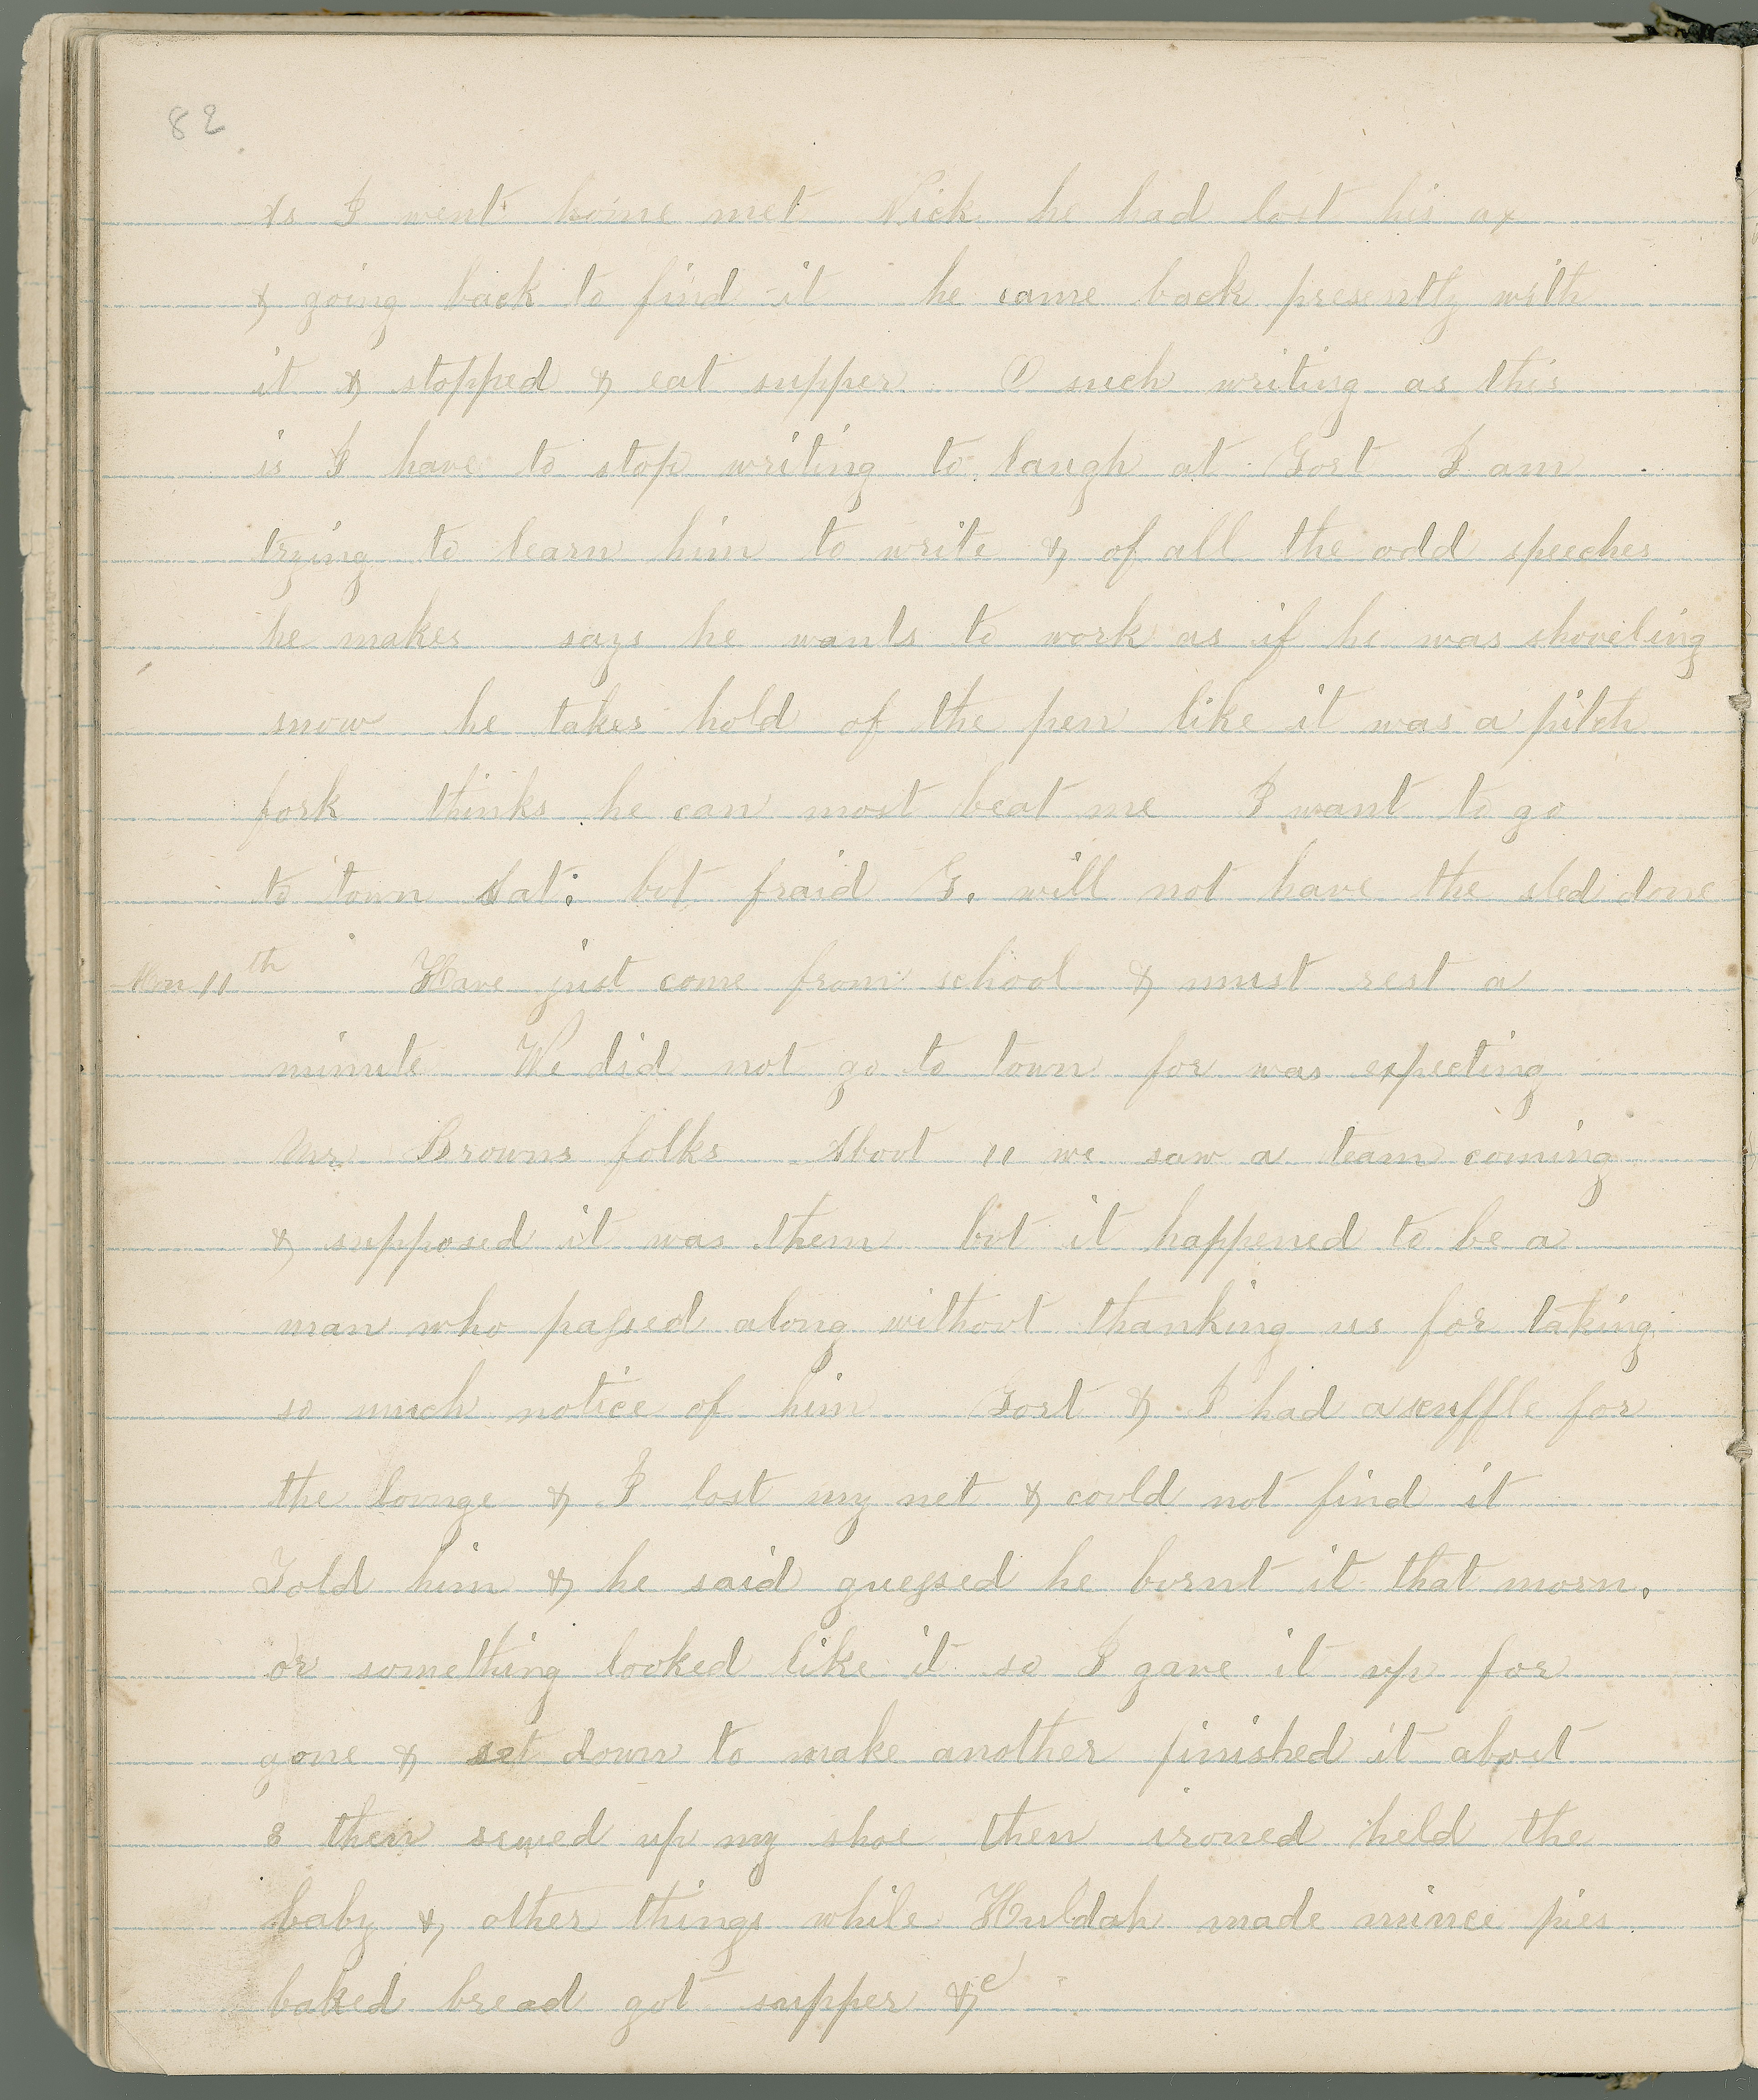 82
As I went home met Nick he had lost his ax
& going back to find it he came back presently with
it & stopped & eat supper O such writing as this
is I have to stop writing to laugh at Gort I am
trying to learn him to write & of all the odd speeches
he makes says he wants to work as if he was shoveling
snow he takes hold of the pen like it was a pitch
fork thinks he can most beat me I want to go
to town Sat. but fraid G. will not have the sled done
Mon 11th Have just come from school & must rest a
minute We did not go to town for was expecting
Mr Browns folks About 11 we saw a team coming
& supposed it was them but it happened to be a
man who passed along without thanking us for taking
so much notice of him Gort & I had a scuffle for
the lounge & I lost my net & could not find it
Told him & he said guessed he burnt it that morn.
or something looked like it so I gave it up for
gone & set down to make another finished it about
8 then sewed up my shoe then ironed held the
baby & other things while Huldah made mince pies
baked bread got supper &c